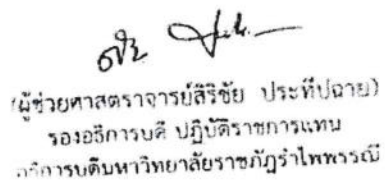 (ผู้ช่วยศาสตราจารย์สิริชัย ประทีปฉาย)
รองอธิการบดี ปฏิบัติราชการแทน
อธิการบดีมหาวิทยาลัยราชภัฏรำไพพรรณี